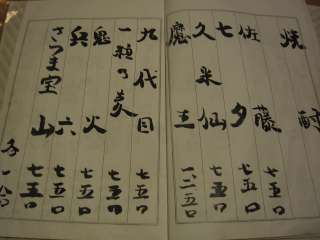 焼酎
佐藤 七五〇
七夕 七五〇
久米仙 七五〇
魔王 一、二五〇
九代目 七五〇
一粒の麦 七五〇
鬼火 七五〇
兵六 七五〇
さつま宝山 七五〇